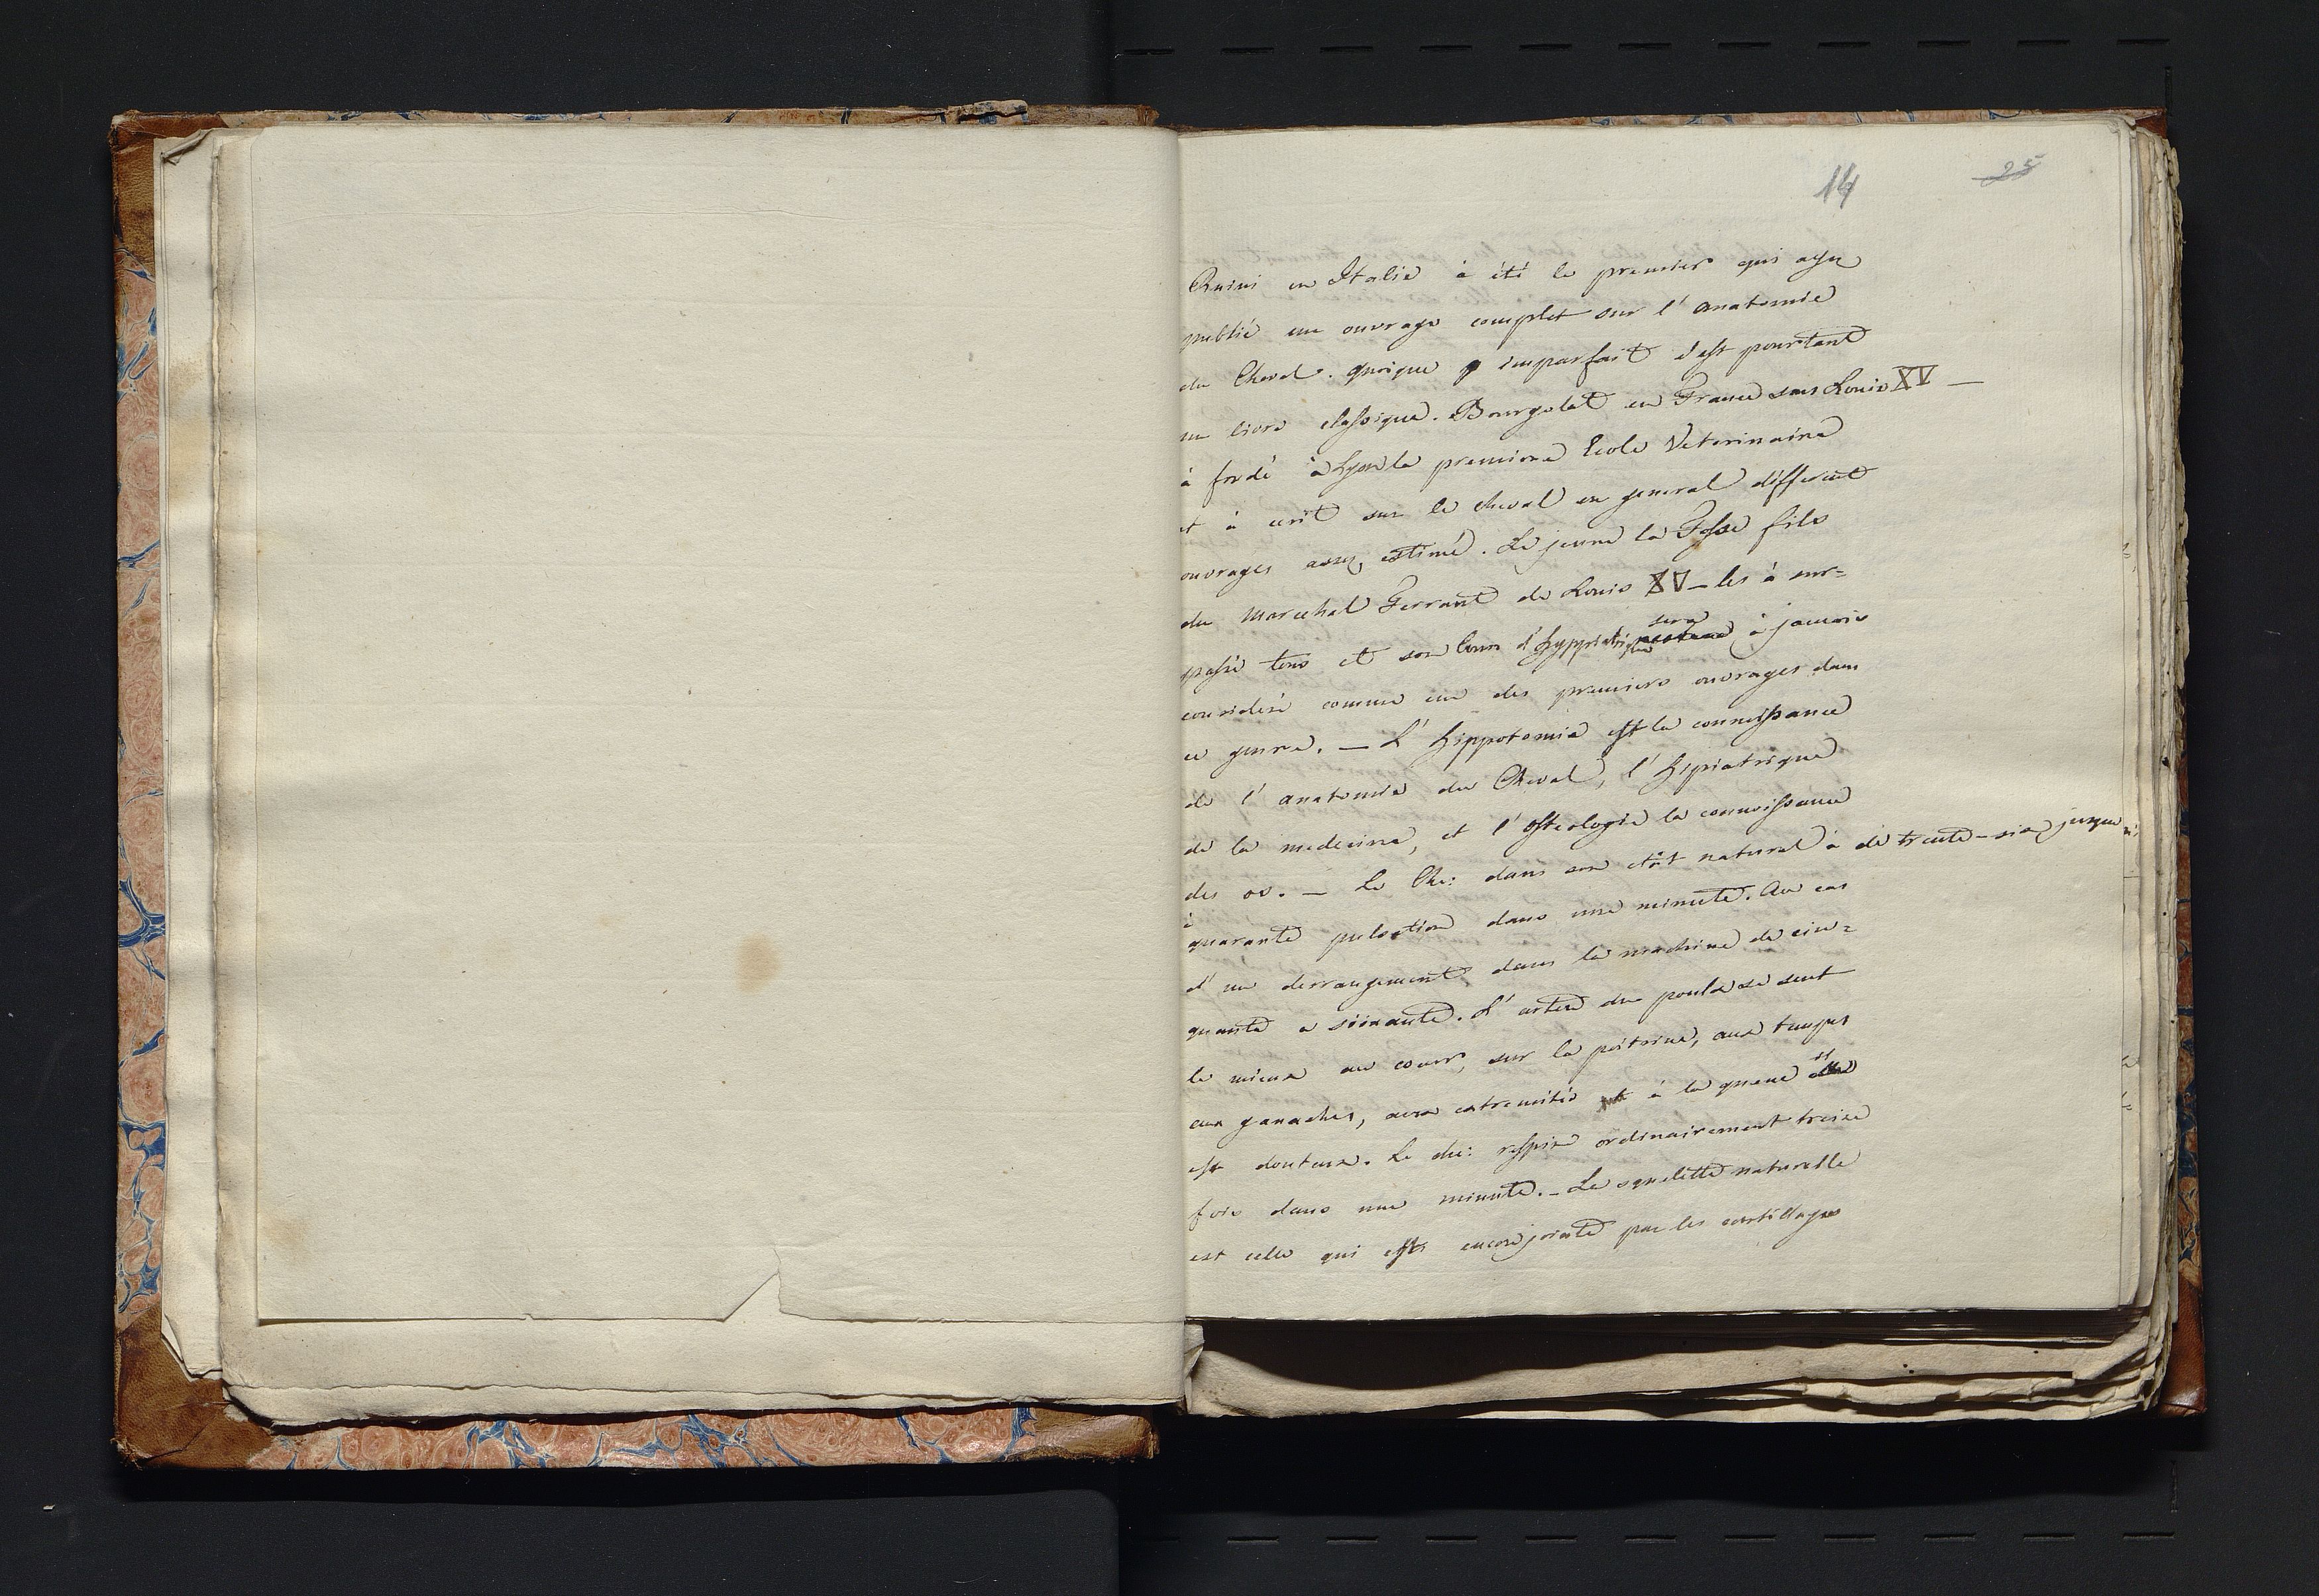 14 25
Ruini en Italie à été le premier qui aye
publié un ouvrage complet sur l'anatomie
du Cheval. quoique imparfait c'est pourtant
un livre classique. Bourgelat en France sous Louis XV —
à fondé à Lyon la premiere Ecole Veterinaire
et à ecrit sur le cheval en general différent
ouvrages assez estimé. Le jeune la Fosse fils
du Marechal Ferrant de Louis XV — les à sur=
sera
passé tous et son Cours d'hyppiatrique à jamais
considéré comme un des premiers ouvrages dans
ce genre. — L'hippotomie est la connoissance
de l'anatomie du Cheval, l'hipiatrique
de la medecine, et l'osteologie la connoissance
des os. — Le Che: dans son etât naturel à de trente-six jusqu'
à
quarante pulsation dans une minute. Au cas
d'un derrangement dans la machine de cin=
quante a soixante. L'artere du pouls se sent
le mieux au coeur, sur la poitrine, aux tempes
aux ganaches, aux extremités à la queue il
est douteux. Le che: respire ordinairement treize
fois dans une minute. — Le squelette naturelle
est celle qui est encore jointe par les cartillages